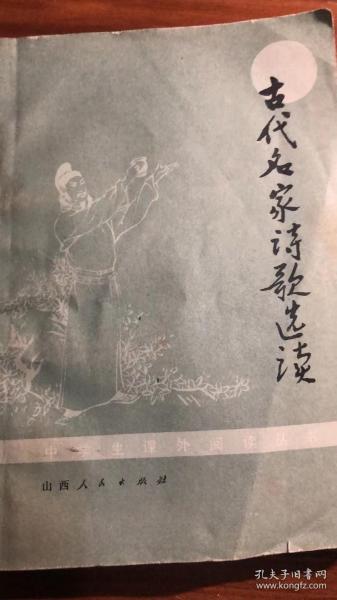 古代名家诗歌选读
中学生课外阅读丛书
山西人民出版社
孔夫子旧书网